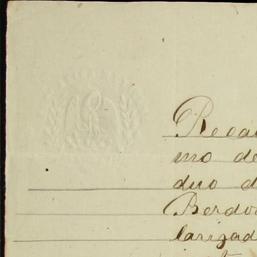 Recau
mo de
duo d
Berdo
larizad